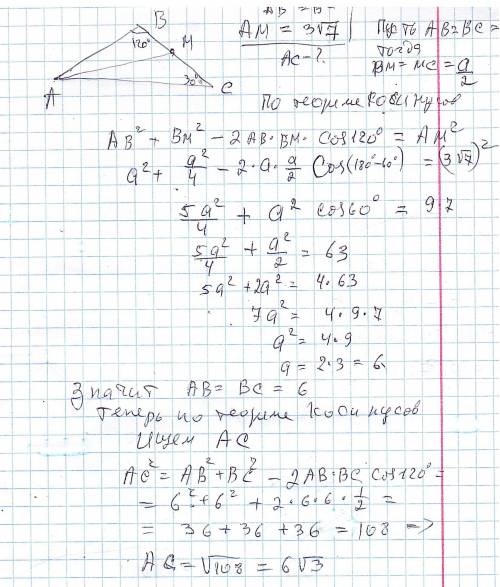 AB = B
B
120°
M
A
30°
C
AM = 3√7
AC - ?
Пусть AB = BC =
тогда
BM = MC = a/2
По теореме косинусов
AB² + BM² - 2AB · BM · cos120° = AM²
a² + a²/4 - 2 · a · a/2 cos(180° - 60°) = (3√7)²
5a²/4 + a² cos60° = 9·7
5a²/4 + a²/2 = 63
5a² + 2a² = 4·63
7a² = 4·9·7
a² = 4·9
a = 2·3 = 6
Значит AB = BC = 6
Теперь по теореме косинусов
Ищем AC
AC² = AB² + BC² - 2AB·BC cos120° =
= 6² + 6² + 2·6·6·1/2 =
= 36 + 36 + 36 = 108 =>
AC = √108 = 6√3